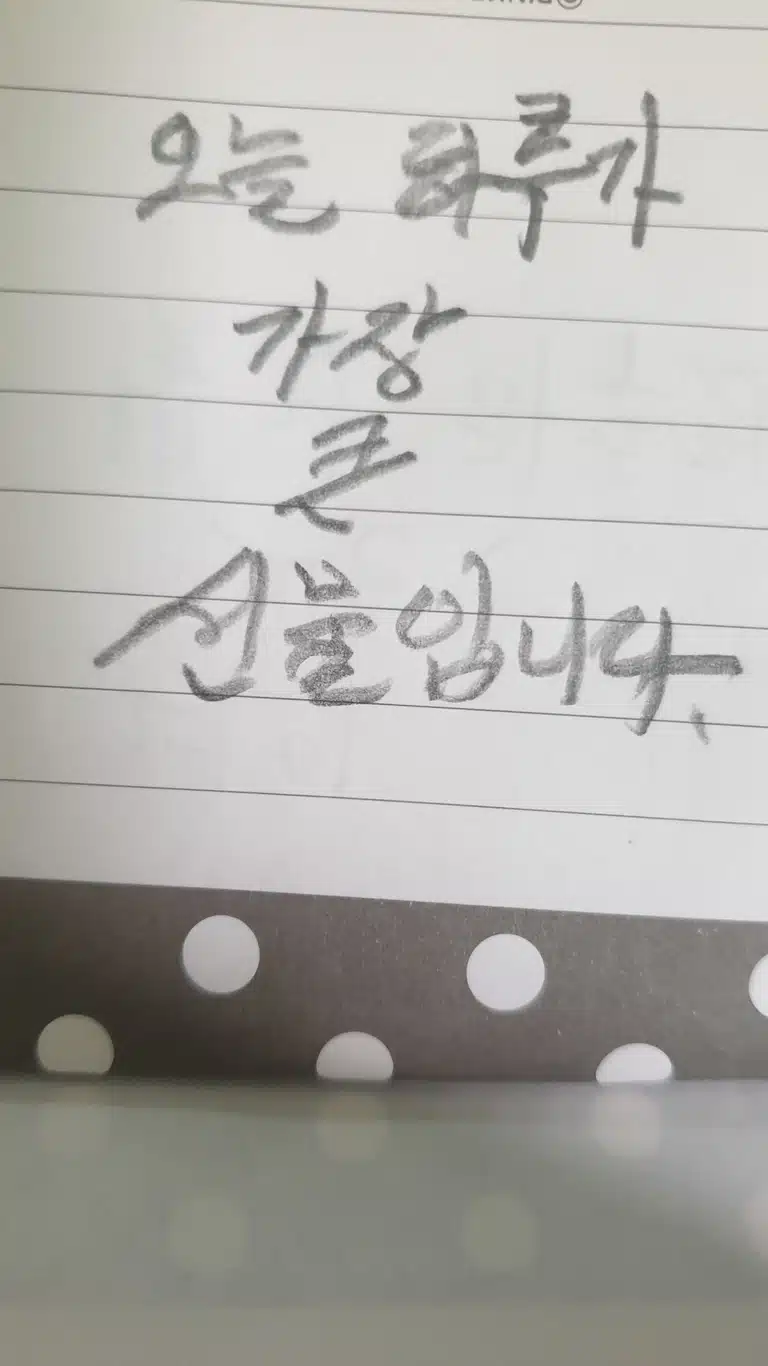 오늘 하루가
가장
큰
선물입니다.